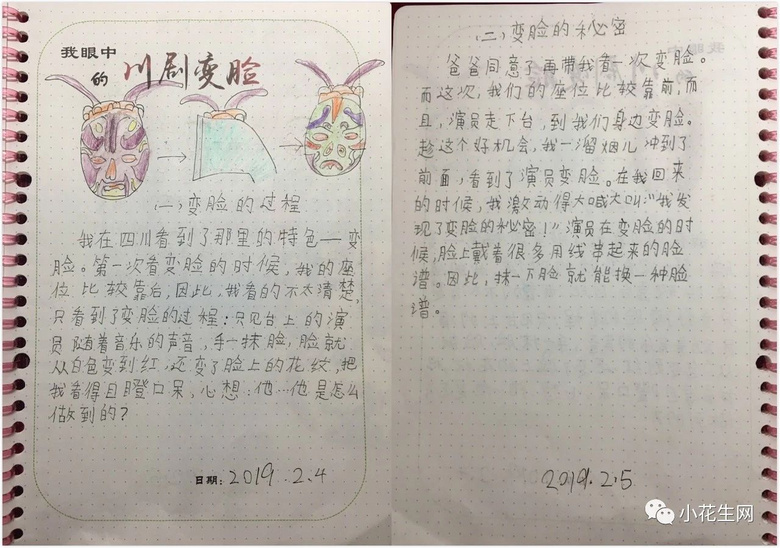 我眼中
的 川剧变脸
(一)变脸的过程
我在四川看到了那里的特色——变
脸。第一次看变脸的时候，我的座
位比较靠后，因此，我看的不太清楚，
只看到了变脸的过程：只见台上的演
员随着音乐的声音，手一抹脸，脸就
从白色变到红，还变了脸上的花纹，把
我看得目瞪口呆，心想：他…他是怎么
做到的？
日期：2019.2.4
(二)变脸的秘密
爸爸同意了再带我看一次变脸。
而这次，我们的座位比较靠前，而
且，演员走下台，到我们身边变脸。
趁这个好机会，我一溜烟儿冲到了
前面，看到了演员变脸。在我回来
的时候，我激动得大喊大叫：“我发
现了变脸的秘密！”演员在变脸的时
候，脸上戴着很多用线串起来的脸
谱。因此，抹一下脸就能换一种脸
谱。
2019.2.5
小花生网